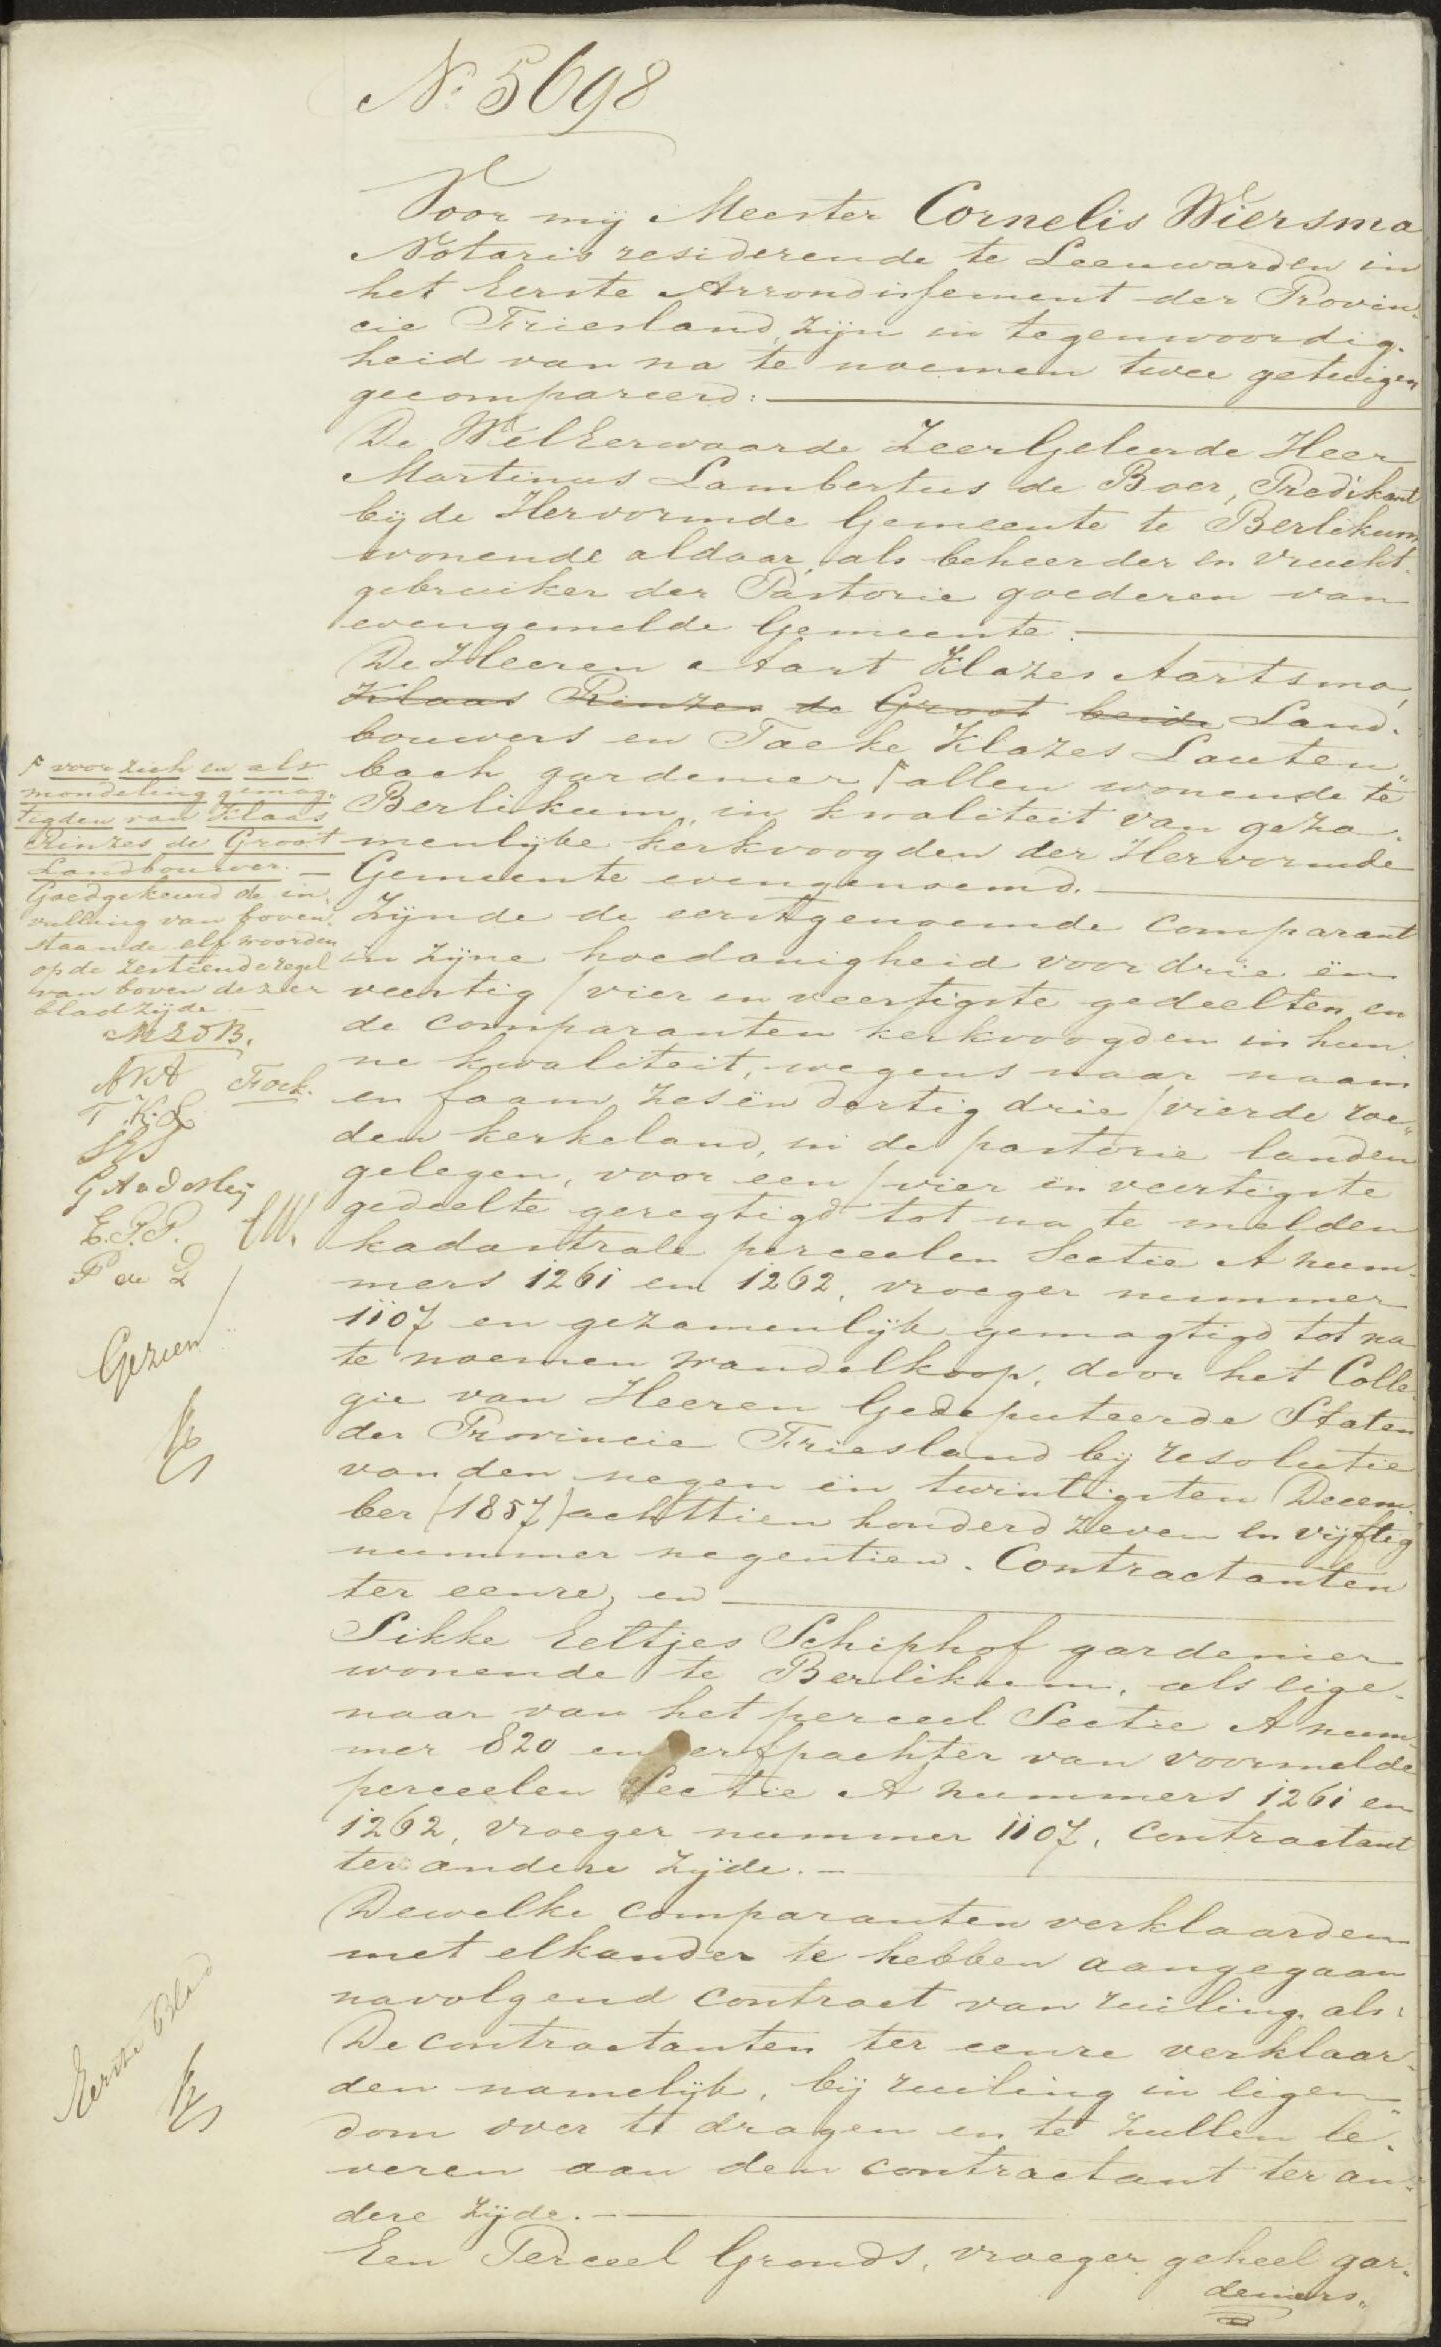 No 5698
Voor mij Meester Cornelis Wiersma
Notaris residerende te Leeuwarden in
het Eerste Arrondissement der Provin-
cie Friesland, zijn in tegenwoordig-
heid van na te noemen twee getuigen
gecompareerd:
De WelEerwaarde ZeerGeleerde Heer
Martinus Lambertus de Boer, Predikant
bij de Hervormde Gemeente te Berlikum,
wonende aldaar, als beheerder en vrucht-
gebruiker der Pastorie goederen van
evengemelde Gemeente.
De Heeren Aart Klazes Aartsma,
Klaas Rinzes de Groot beide Land-
bouwers en Taeke Klazes Lauten-
bach gardenier allen wonende te
Berlikum, in kwaliteit van geza-
menlijke kerkvoogden der Hervormde
Gemeente evengenoemd.
Zijnde de eerstgenoemde comparant
in zijne hoedanigheid voor drie ën
veertig / vier en veertigste gedeelten en
de comparanten kerkvoogden in hun-
ne kwaliteit, wegens naar naam
en faam zes ën dertig drie / vierde roe-
den kerkeland, in de pastorie landen
gelegen, voor een / vier ën veertigste
gedeelte geregtigd tot na te melden
kadastrale perceelen Sectie A num-
mers 1261 en 1262, vroeger nummer
1107 en gezamenlijk gemagtigd tot na
te noemen wandelkoop, door het Colle-
gie van Heeren Gedeputeerde Staten
der Provincie Friesland bij resolutie
van den negen ën twintigsten Decem-
ber (1857) achttien honderd zeven en vijftig
nummer negentien. Contractanten
ter eenre, en
Sikke Eeltjes Schiphof gardenier
wonende te Berlikum, als eige-
naar van het perceel Sectie A num-
mer 820 en erfpachter van voormelde
perceelen Sectie A nummers 1261 en
1262, vroeger nummer 1107, contractant
ter andere zijde.
Dewelke comparanten verklaarden
met elkander te hebben aangegaan
navolgend contract van ruiling als:
De contractanten ter eenre verklaar-
den namelijk, bij ruiling in eigen-
dom over te dragen en te zullen le-
veren aan den contractant ter an-
dere zijde.
Een Perceel Gronds, vroeger geheel gar-
deniers-
voor zich en als
mondeling gemag-
tigden van Klaas
Rinzes de Groot
Landbouwer.
Goedgekeurd de in-
vulling van boven-
staande elf woorden
op de zestiende regel
van boven dezer
bladzijde
M L d B.
A K A
T. K. L
S E S
E. P. P.
P de
C W.
Gezien
Eerste Blad